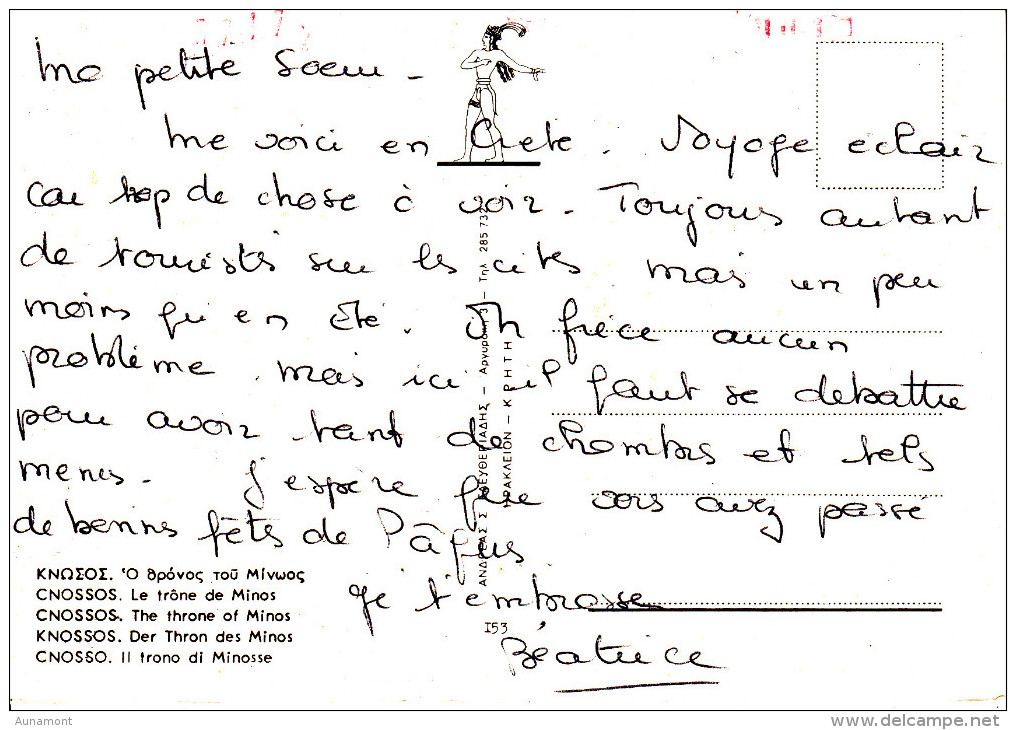 Ma petite Soeur -
Me voici en Crete. Voyage éclair
car trop de chose à voir. Toujours autant
de touristes sur les sites mais un peu
moins qu'en Eté. En Grèce aucun
problème. mais ici il faut se debattre
pour avoir tant de chambres et tels
menus. J'espère que vous avez passé
de bonnes fêtes de Pâques
Je t'embrasse
Béatrice
ΚΝΩΣΟΣ. Ὁ θρόνος τοῦ Μίνωος
CNOSSOS. Le trône de Minos
CNOSSOS. The throne of Minos
KNOSSOS. Der Thron des Minos
CNOSSO. Il trono di Minosse
Τηλ 285 732
ΗΡΑΚΛΕΙΟΝ – ΚΡΗΤΗ
153
Aunamont
www.delcampe.net